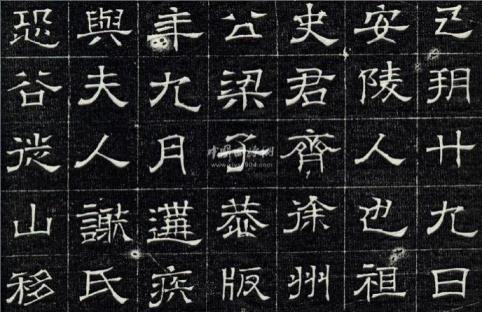 巳朔廿九日
安陵人也祖
史君齊徐州
公梁子恭版
年九月遘疾
與夫人謝氏
恐谷徙山移